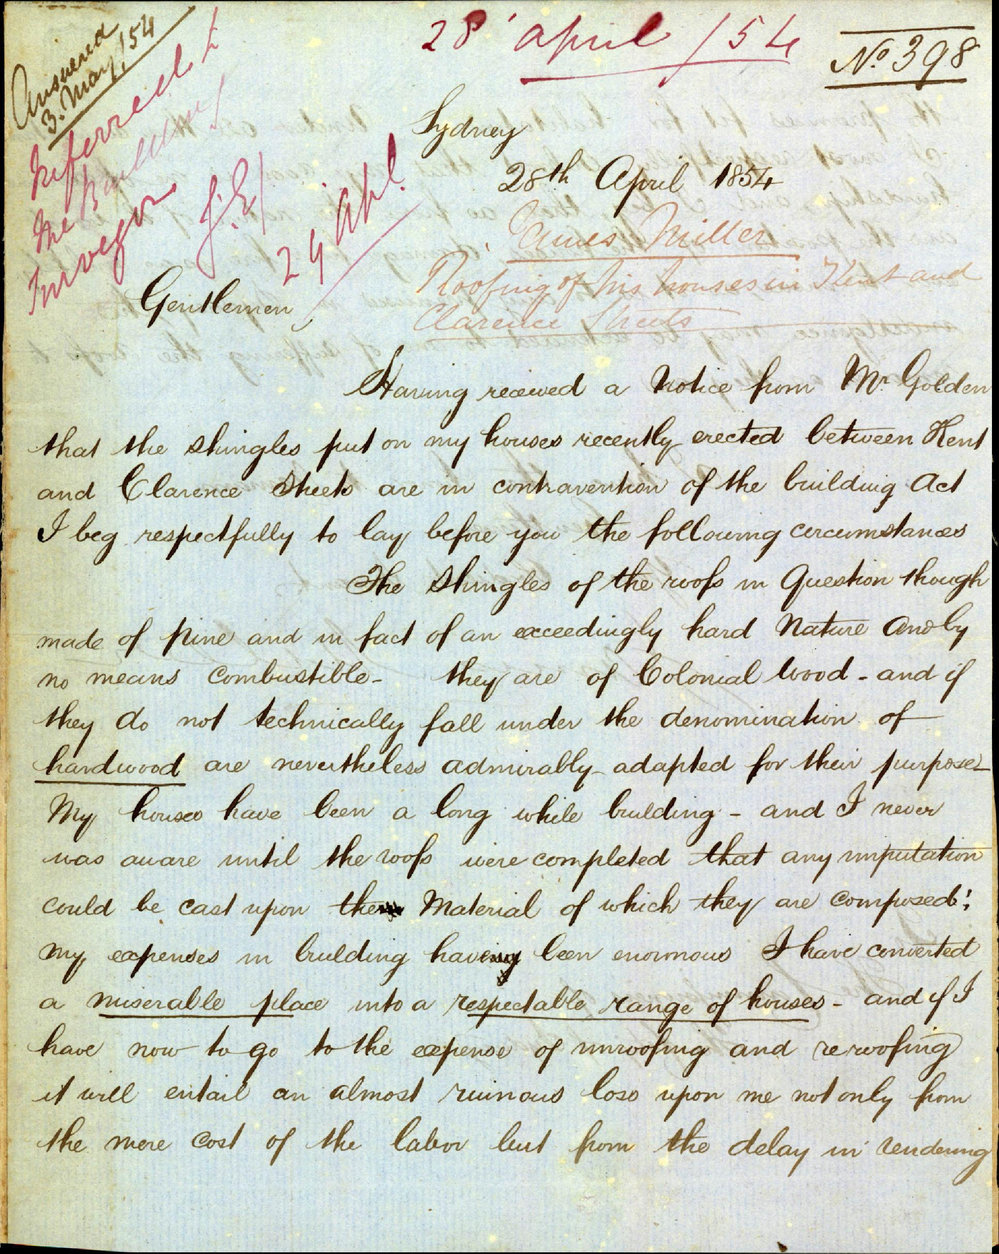 Answered
3. May /54
28 april /54
No 398
Referred to
the Building
Surveyor
J. E/
29 Apl.
Sydney
28th April 1854
James Miller
Roofing of his houses in Kent and
Clarence Streets
Gentlemen
Having received a Notice from Mr Golden
that the shingles put on my houses recently erected between Kent
and Clarence Streets are in contravention of the building Act
I beg respectfully to lay before you the following circumstances
The Shingles of the roofs in Question though
made of pine and in fact of an exceedingly hard Nature and by
no means combustible - they are of Colonial wood - and if
they do not technically fall under the denomination of
hardwood are nevertheless admirably adapted for their purpose -
My houses have been a long while building - and I never
was aware until the roofs were completed that any imputation
could be cast upon the Material of which they are composed;
my expenses in building having been enormous I have converted
a miserable place into a respectable range of houses - and if I
have now to go to the expense of unroofing and reroofing
it will entail an almost ruinous loss upon me not only from
the mere cost of the labor but from the delay in rendering